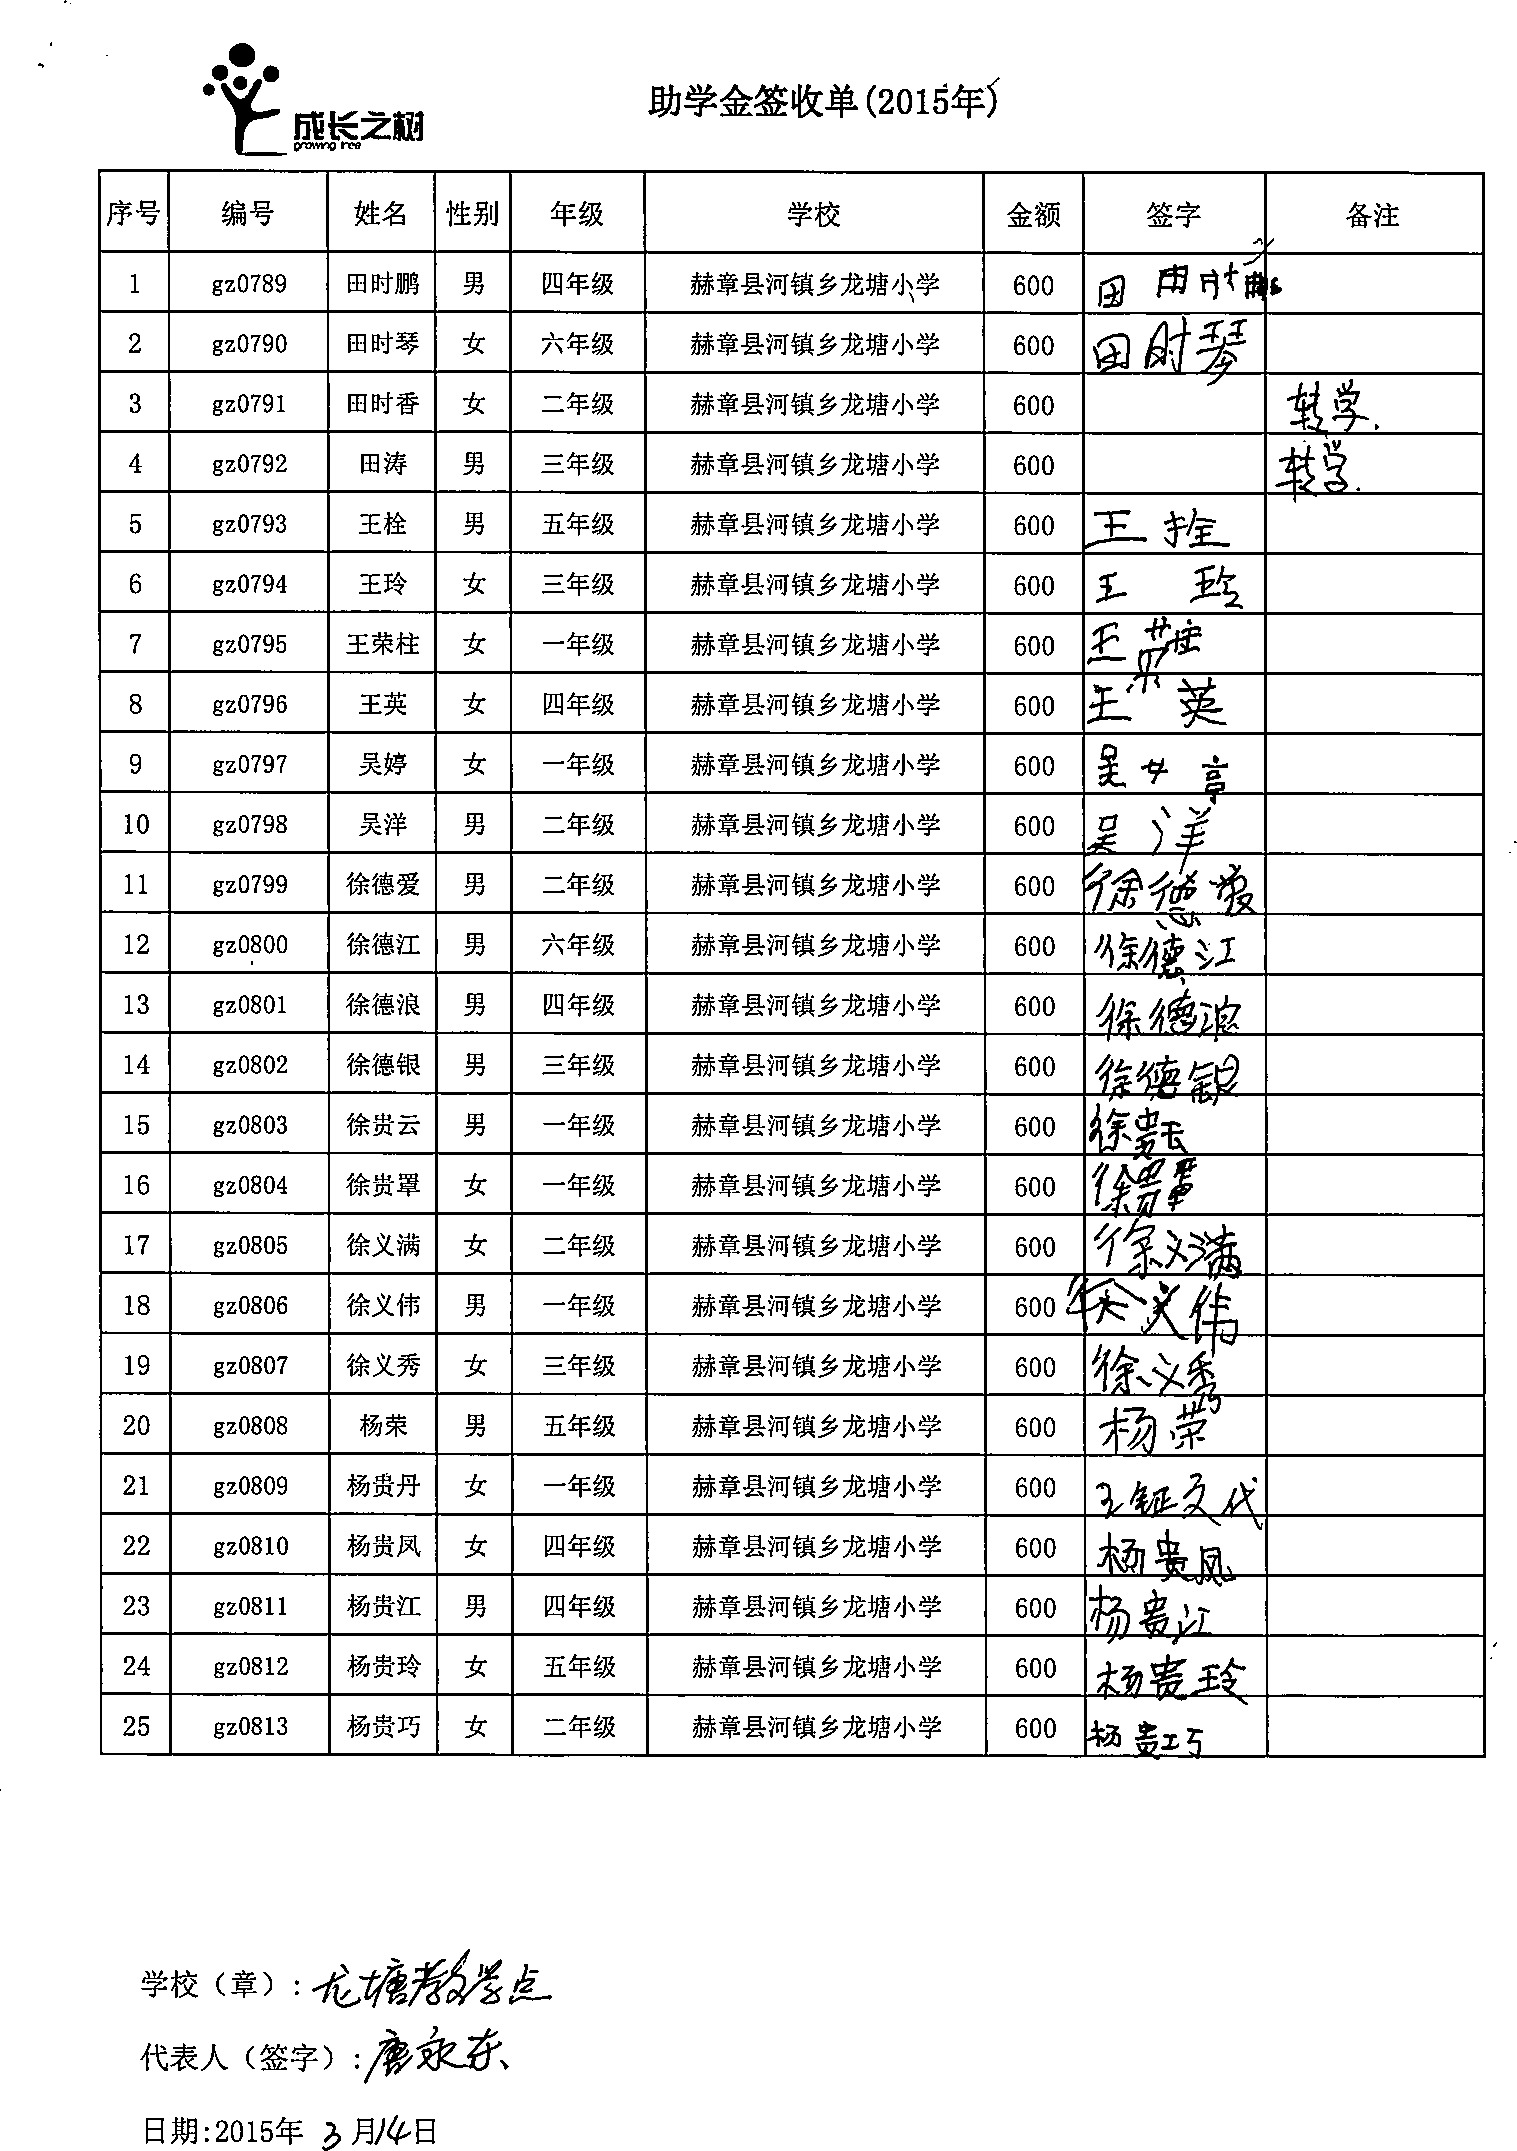 成长之树
growing tree
助学金签收单(2015年)
序号 编号 姓名 性别 年级 学校 金额 签字 备注
1 gz0789 田时鹏 男 四年级 赫章县河镇乡龙塘小学 600 田 田时鹏
2 gz0790 田时琴 女 六年级 赫章县河镇乡龙塘小学 600 田时琴
3 gz0791 田时香 女 二年级 赫章县河镇乡龙塘小学 600 转学.
4 gz0792 田涛 男 三年级 赫章县河镇乡龙塘小学 600 转学.
5 gz0793 王栓 男 五年级 赫章县河镇乡龙塘小学 600 王拴
6 gz0794 王玲 女 三年级 赫章县河镇乡龙塘小学 600 王玲
7 gz0795 王荣柱 女 一年级 赫章县河镇乡龙塘小学 600 王荣柱
8 gz0796 王英 女 四年级 赫章县河镇乡龙塘小学 600 王英
9 gz0797 吴婷 女 一年级 赫章县河镇乡龙塘小学 600 吴婷
10 gz0798 吴洋 男 二年级 赫章县河镇乡龙塘小学 600 吴洋
11 gz0799 徐德爱 男 二年级 赫章县河镇乡龙塘小学 600 徐德爱
12 gz0800 徐德江 男 六年级 赫章县河镇乡龙塘小学 600 徐德江
13 gz0801 徐德浪 男 四年级 赫章县河镇乡龙塘小学 600 徐德浪
14 gz0802 徐德银 男 三年级 赫章县河镇乡龙塘小学 600 徐德银
15 gz0803 徐贵云 男 一年级 赫章县河镇乡龙塘小学 600 徐贵云
16 gz0804 徐贵罩 女 一年级 赫章县河镇乡龙塘小学 600 徐贵罩
17 gz0805 徐义满 女 二年级 赫章县河镇乡龙塘小学 600 徐义满
18 gz0806 徐义伟 男 一年级 赫章县河镇乡龙塘小学 600 徐义伟
19 gz0807 徐义秀 女 三年级 赫章县河镇乡龙塘小学 600 徐义秀
20 gz0808 杨荣 男 五年级 赫章县河镇乡龙塘小学 600 杨荣
21 gz0809 杨贵丹 女 一年级 赫章县河镇乡龙塘小学 600 王钲文代
22 gz0810 杨贵凤 女 四年级 赫章县河镇乡龙塘小学 600 杨贵凤
23 gz0811 杨贵江 男 四年级 赫章县河镇乡龙塘小学 600 杨贵江
24 gz0812 杨贵玲 女 五年级 赫章县河镇乡龙塘小学 600 杨贵玲
25 gz0813 杨贵巧 女 二年级 赫章县河镇乡龙塘小学 600 杨贵巧
学校（章）: 龙塘教学点
代表人（签字）: 唐永东
日期:2015年 3月14日